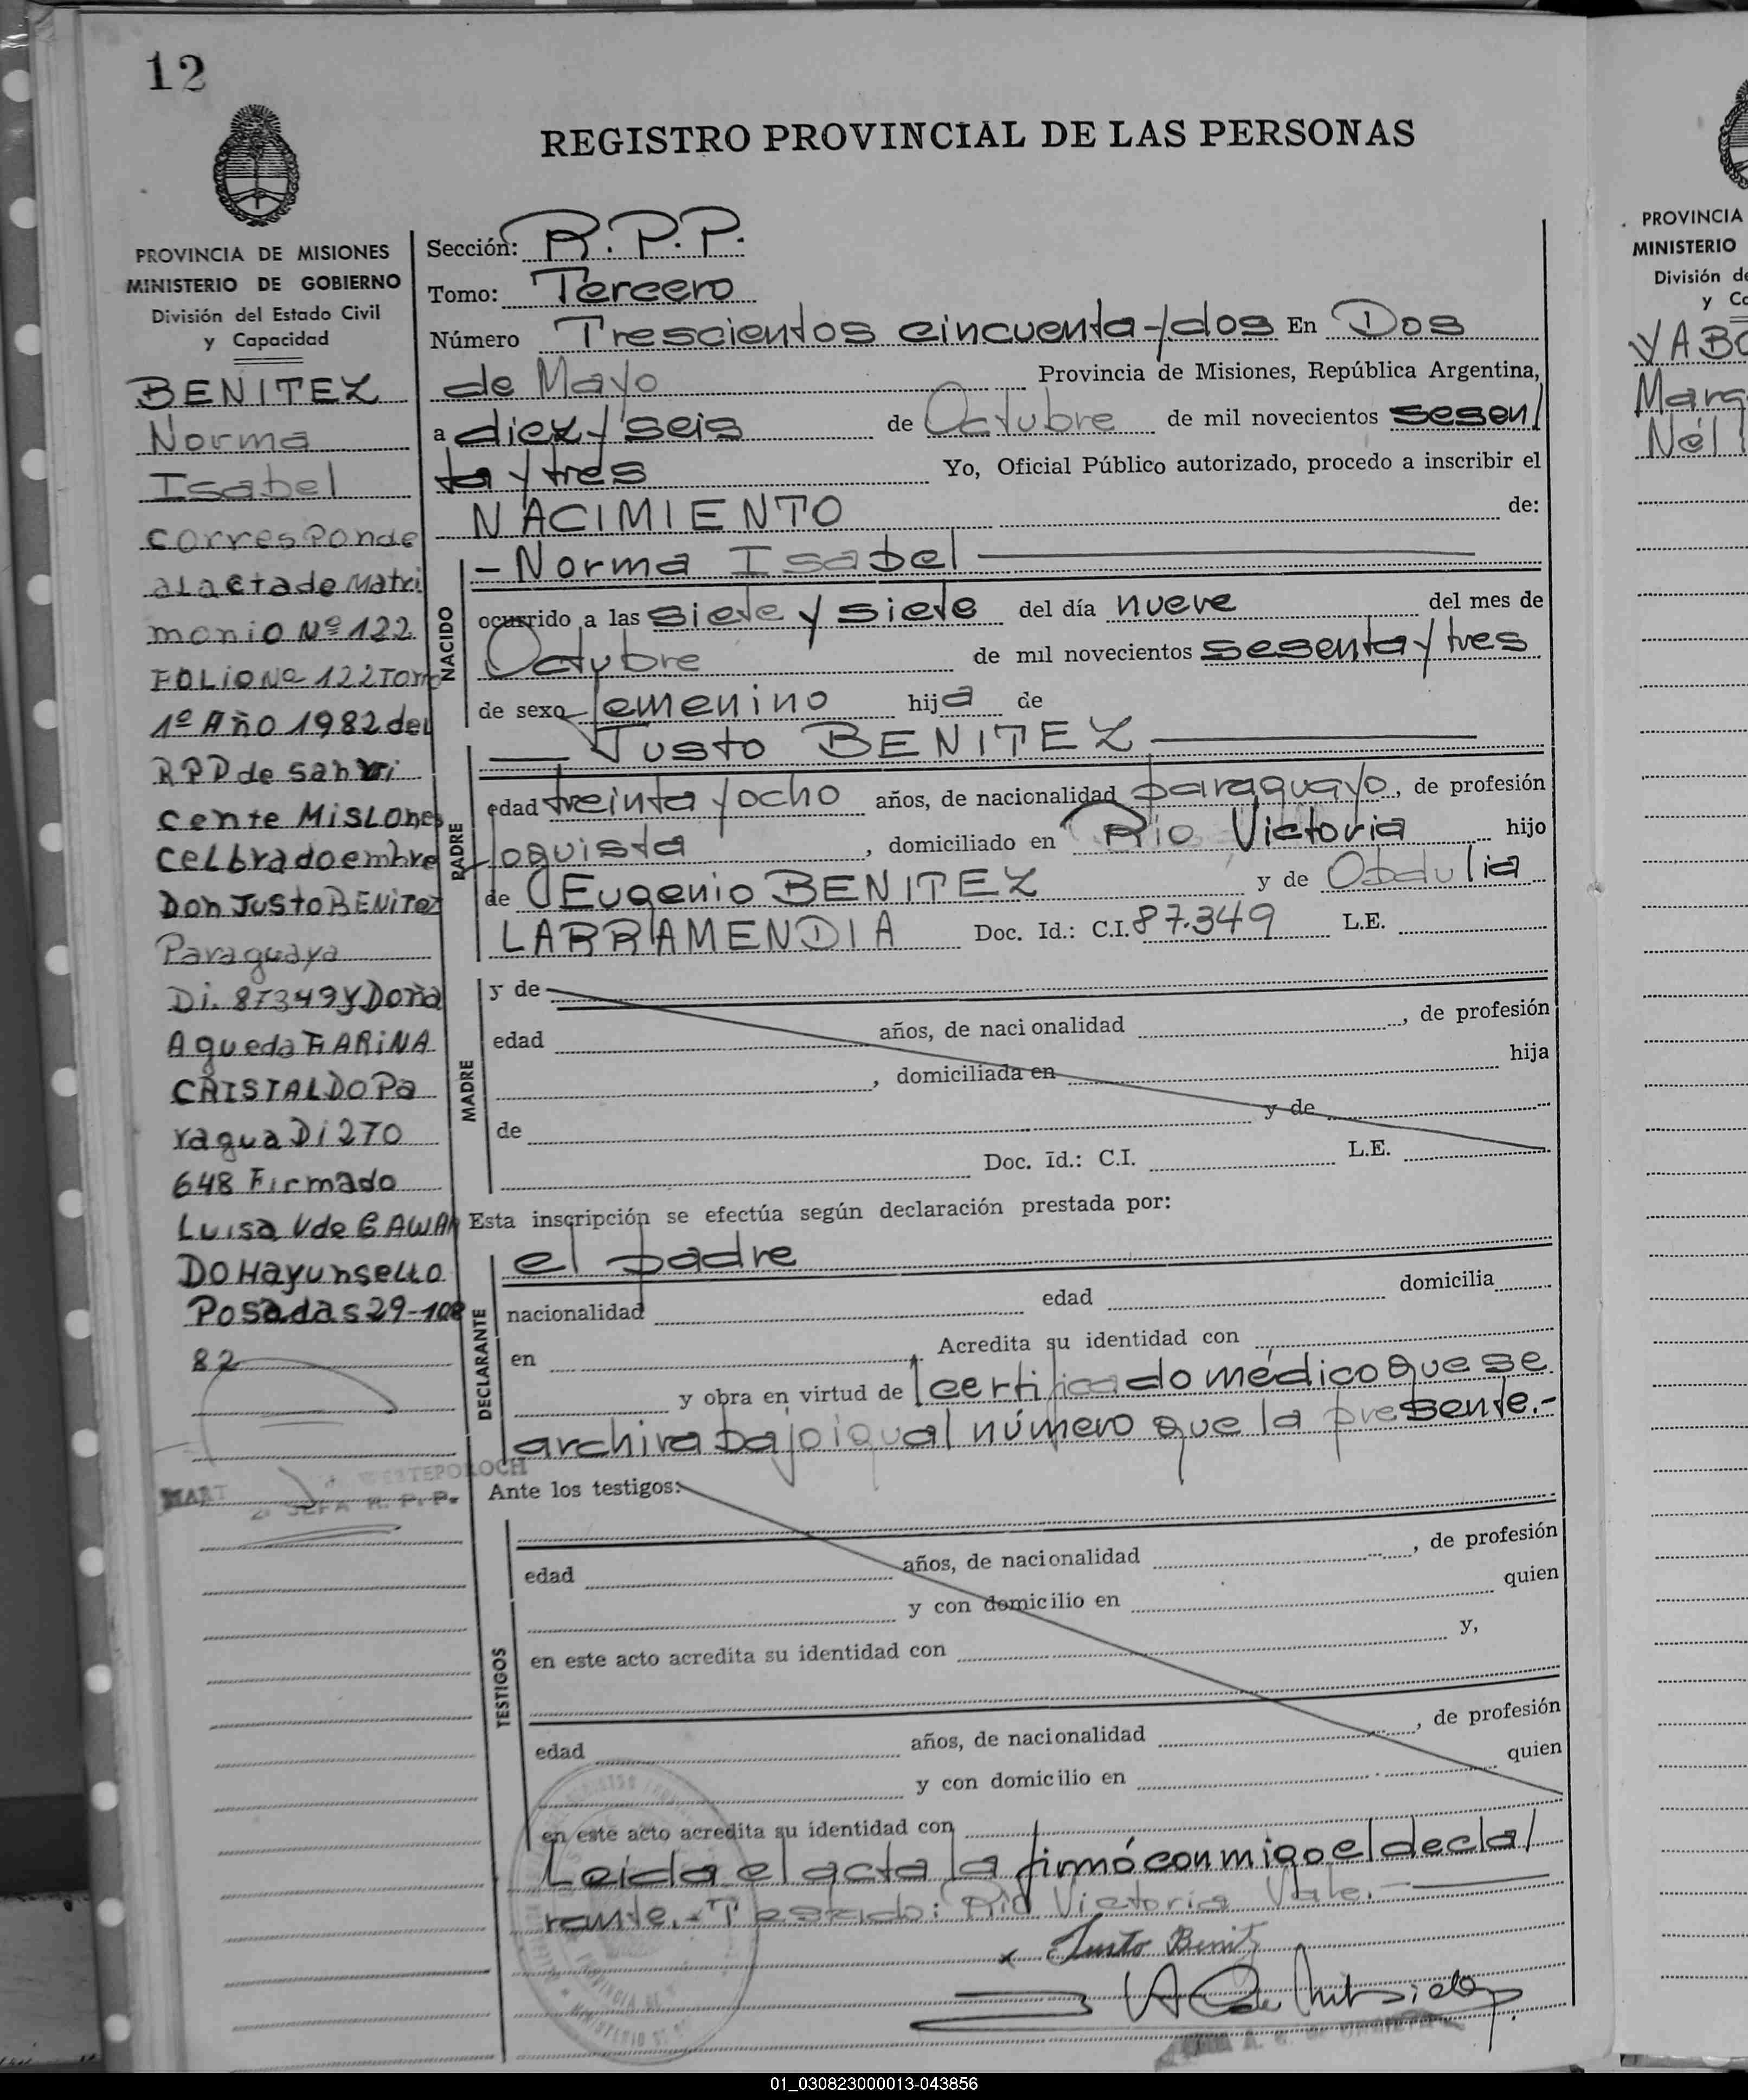 12
REGISTRO PROVINCIAL DE LAS PERSONAS
PROVINCIA DE MISIONES
MINISTERIO DE GOBIERNO
División del Estado Civil
y Capacidad
BENITEZ
Norma
Isabel
corresponde
al acta de Matri
monio Nº 122
FOLIO Nº 122 Tomo
1º Año 1982 del
RPP de San Vi
cente Misiones
Celbrado embre
Don Justo BENITEZ
Paraguaya
Di. 87349 y Doña
Agueda FARIÑA
CRISTALDO Pa
ragua Di 270
648 Firmado
Luisa V de GAWAN
DO Hay un sello
Posadas 29-10
82
JEFA R. P. P.
Sección: R.P.P.
Tomo: Tercero
Número Trescientos cincuenta y dos En Dos
de Mayo Provincia de Misiones, República Argentina,
a diez y seis de Octubre de mil novecientos sesen/
ta y tres Yo, Oficial Público autorizado, procedo a inscribir el
NACIMIENTO de:
- Norma Isabel
NACIDO
ocurrido a las siete y siete del día nueve del mes de
Octubre de mil novecientos sesenta y tres
de sexo femenino hija de
Justo BENITEZ
PADRE
edad treinta y ocho años, de nacionalidad paraguayo, de profesión
foguista, domiciliado en Rio Victoria hijo
de Eugenio BENITEZ y de Obdulia
LARRAMENDIA Doc. Id.: C.I. 87.349 L.E.
MADRE
y de
edad años, de nacionalidad , de profesión
, domiciliada en hija
de y de
Doc. Id.: C.I. L.E.
Esta inscripción se efectúa según declaración prestada por:
DECLARANTE
el padre
nacionalidad edad domicilia
en Acredita su identidad con
y obra en virtud de certificado médico que se
archiva bajo igual número que la presente.-
Ante los testigos:
TESTIGOS
edad años, de nacionalidad , de profesión
y con domicilio en quien
en este acto acredita su identidad con y,
edad años, de nacionalidad , de profesión
y con domicilio en quien
en este acto acredita su identidad con
Leída el acta la firmó conmigo el decla/
rante.- Testado: Rio Victoria Vale.-
x Justo Benit
PROVINCIA
MINISTERIO
División de
y Ca
YABO
Marg
Nél
01_030823000013-043856